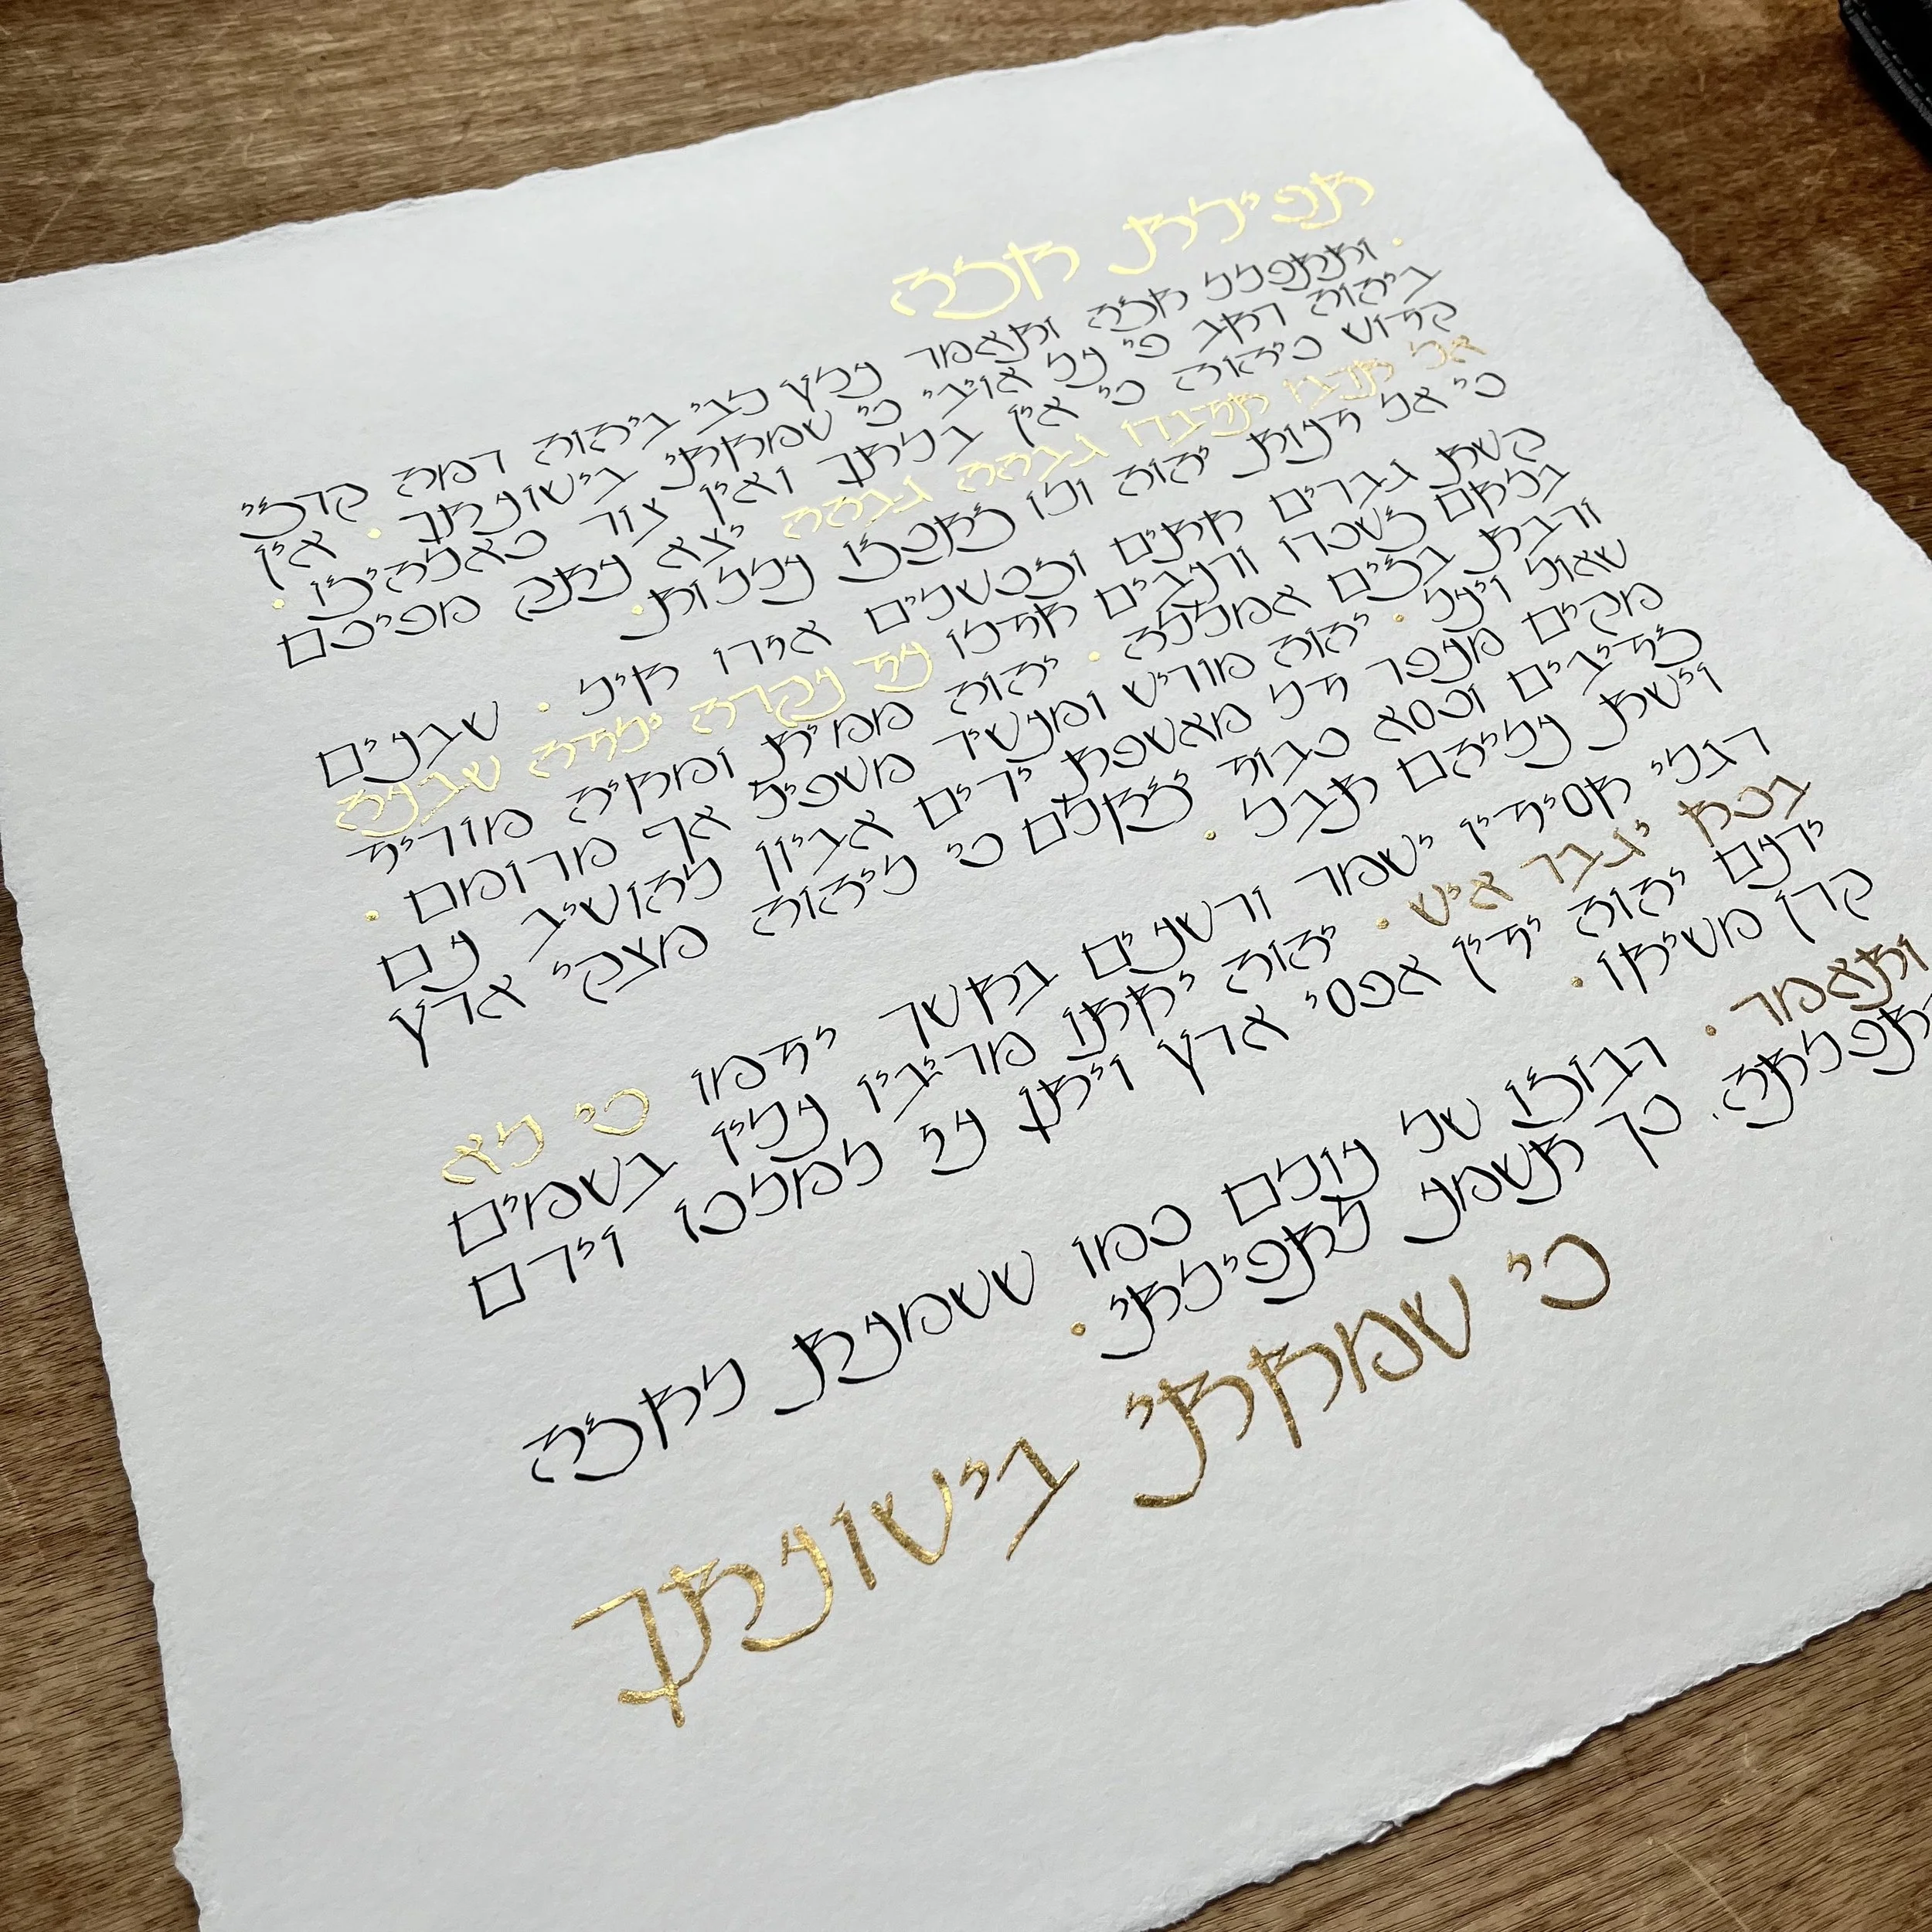 תפילת חנה
ותתפלל חנה ותאמר עלץ לבי ביהוה רמה קרני
ביהוה רחב פי על אויבי כי שמחתי בישועתך . אין
קדוש כיהוה כי אין בלתך ואין צור כאלהינו .
אל תרבו תדברו גבהה גבהה יצא עתק מפיכם
כי אל דעות יהוה ולו נתכנו עללות.
קשת גברים חתים ונכשלים אזרו חיל . שבעים
בלחם נשכרו ורעבים חדלו עד עקרה ילדה שבעה
ורבת בנים אמללה . יהוה ממית ומחיה מוריד
שאול ויעל . יהוה מוריש ומעשיר משפיל אף מרומם .
מקים מעפר דל מאשפת ירים אביון להושיב עם
נדיבים וכסא כבוד ינחלם כי ליהוה מצקי ארץ
וישת עליהם תבל .
רגלי חסידיו ישמר ורשעים בחשך ידמו כי לא
בכח יגבר איש . יהוה יחתו מריביו עליו בשמים
ירעם יהוה ידין אפסי ארץ ויתן עז למלכו וירם
קרן משיחו .
ותאמר . רבונו של עולם כמו ששמעת לחנה
תפלתה. כך תשמע לתפילתי .
כי שמחתי בישועתך